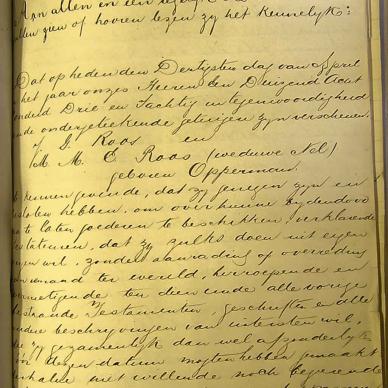 Aan allen en een iegelyk
zullen zien of hooren lezen zy het kennelyk:
Dat op heden den Dertigsten dag van April
het jaar onzes Heeren Een Duizend Acht
Honderd Drie en Tachtig in tegenwoordigheid
de ondergeteekende getuigen zyn verschenen
J. Roos en
M. M. E. Roos (weduwe Nel)
geboren Opperman.
te kennen gevende, dat zy genegen zyn en
besloten hebben, om over hunne
na te laten goederen te beschikken, verklarende
Testateuren, dat zy zulks doen uit eigen
vryen wil, zonder aanrading of overreding
van iemand ter wereld, herroepende en
vernietigende ten dien einde alle vorige
bestaande Testamenten, geschriften en alle
andere beschryvingen van uitersten wil,
die zy gezamentlyk dan wel afzonderlyk
voor dezen datum mogten hebben gemaakt
niet willende noch begeerende